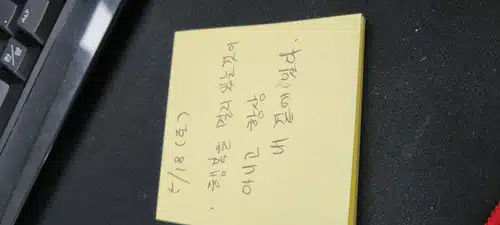 5/18 (토)
. 행복을 멀리 있는것이
아니고 항상
내 곁에 있다.